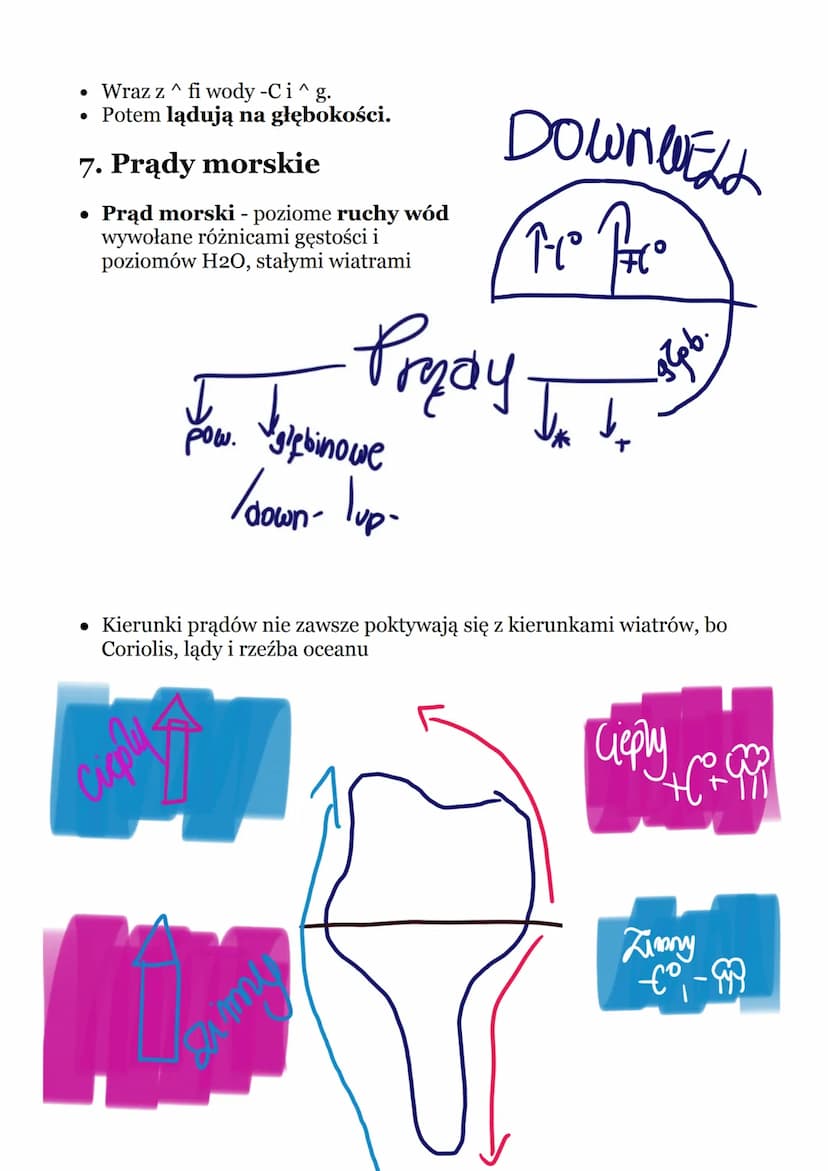 • Wraz z ^ fi wody -C i ^ g.
• Potem lądują na głębokości.
DOWNWELL
7. Prądy morskie
• Prąd morski - poziome ruchy wód
wywołane różnicami gęstości i
poziomów H2O, stałymi wiatrami
↑-C° ↑+C°
głęb.
Prądy
pow. głębinowe * +
/down- \up-
• Kierunki prądów nie zawsze poktywają się z kierunkami wiatrów, bo
Coriolis, lądy i rzeźba oceanu
ciepły
Ciepły
+C° +
zimny
Zimny
-C°, -